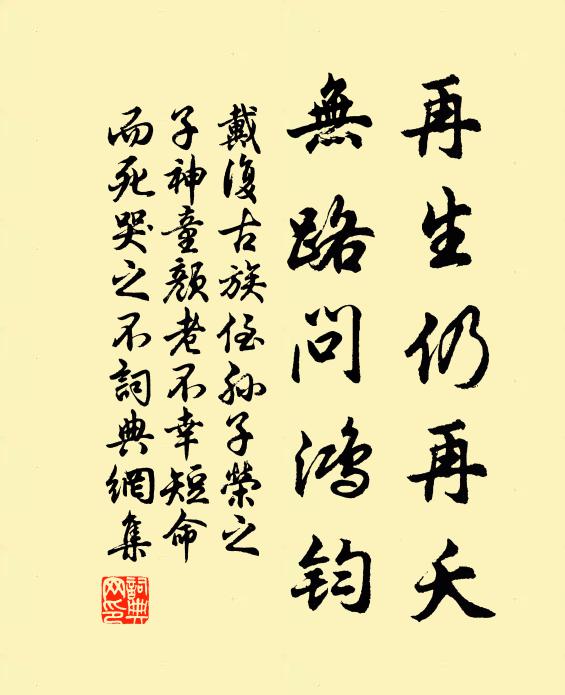 再生仍再夭
無路問鴻鈞
戴復古族侄孫子榮之
子神童顏老不幸短命
而死哭之不詞典網集
詞典网印